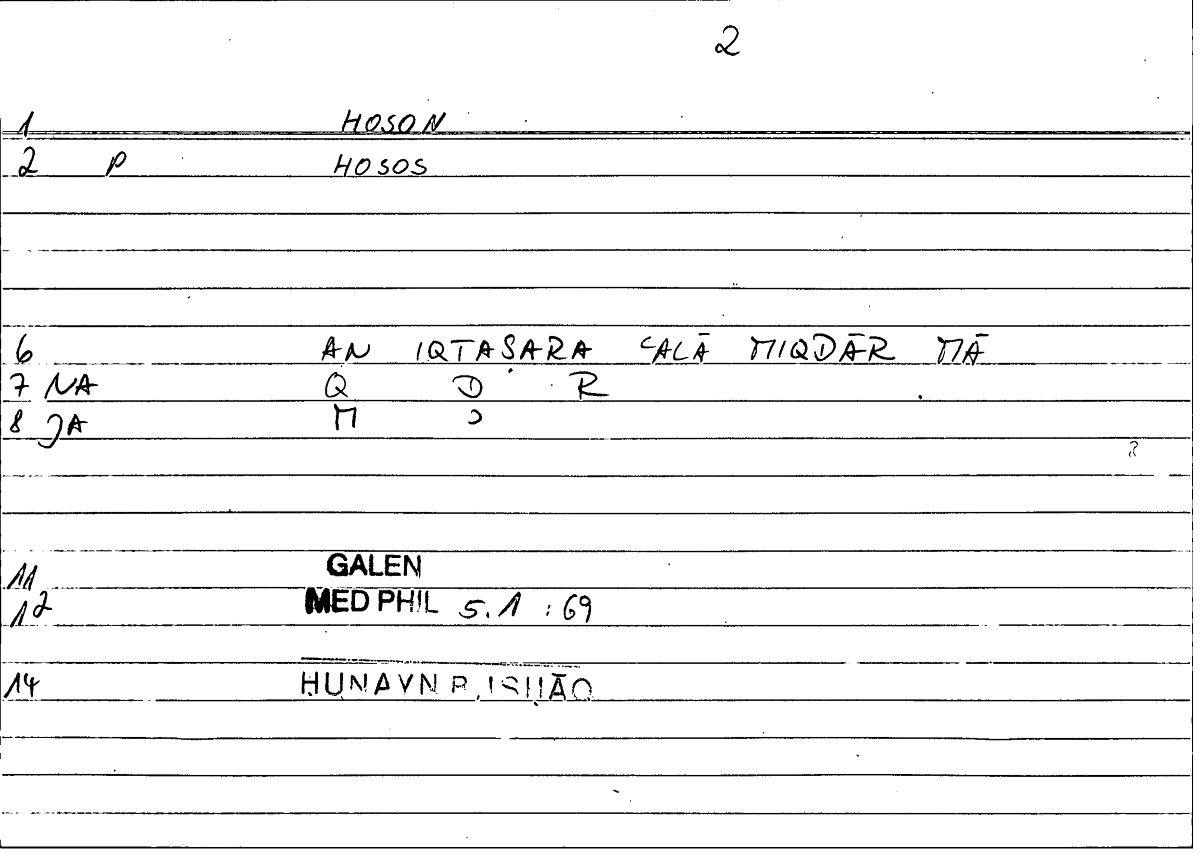 2
1 HOSON
2 P HOSOS
6 AN IQTAṢARA ʿALĀ MIQDĀR MĀ
7 NA Q D R
8 JA M
11 GALEN
12 MED PHIL 5.1 : 69
14 ḤUNAYN B. ISḤĀQ